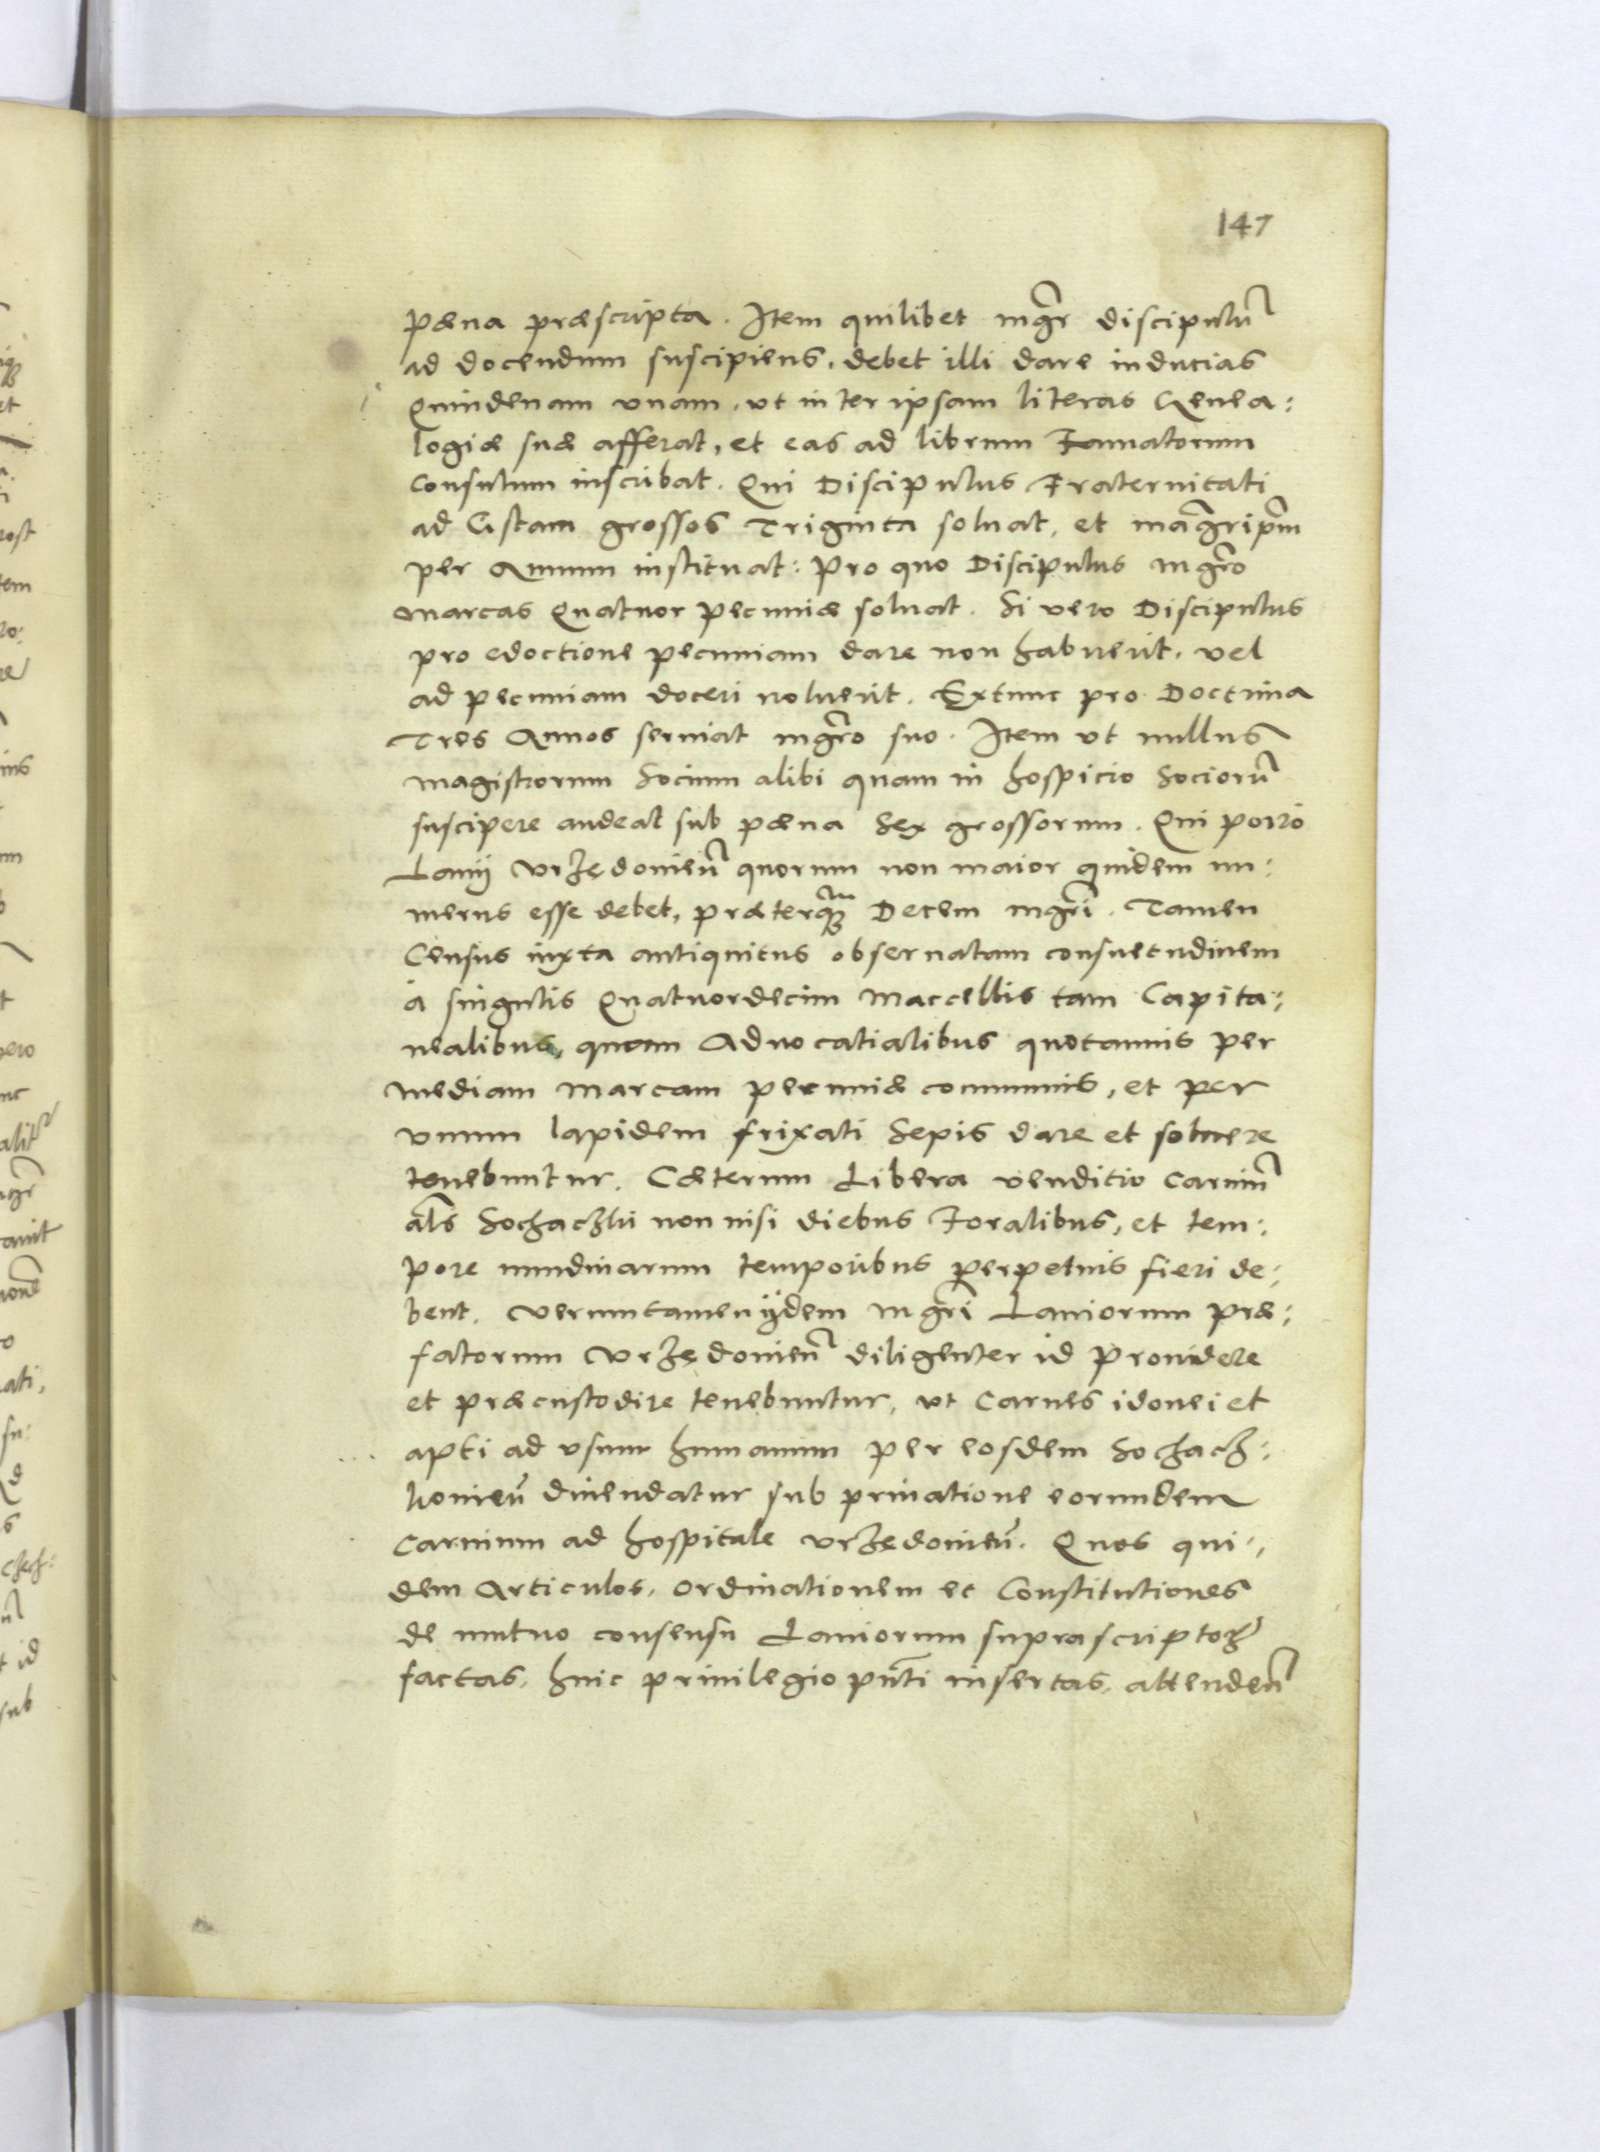 147
pæna præscripta. Item quilibet mgr̃ discipulũ
ad docendum suscipiens, debet illi dare inducias
Quindenam vnam, vt inter ipsam literas Genea:
logiæ suæ afferat, et eas ad librum
Consulum inscribat. Qui Discipulus Fraternitati
ad Cistam grossos Triginta soluat, et
per Annum instituat: Pro quo Discipulus mgr̃o
marcas Quatuor pecuniæ soluat. Si vero Discipulus
pro edoctione pecuniam dare non habuerit, vel
ad pecuniam doceri noluerit. Extunc pro Doctrina
Tres Annos seruiat mgr̃o suo. Item vt nullus
magistrorum Socium alibi quam in hospicio Sociorũ
suscipere audeat sub pæna Sex grossorum. Qui porro
Lanij Vrzędouieñ quorum non maior quidem nu:
merus esse debet, præterq̃ꝫ Decem mgr̃i. Tamen
Census iuxta antiquitus obseruatam consuetudinem
à singulis Quatuordecim Maccellis tam Capita:
nealibus, quam Aduocatialibus quotannis per
mediam marcam pecuniæ communis, et per
vnum lapidem frixati Sepis dare et soluere
tenebuntur. Cæterum Libera venditio Carniũ
al̃s Sochaczki non nisi diebus Foralibus, et tem:
pore nundinarum temporibus perpetuis fieri de:
bent. Veruntamen ijdem mgr̃i Laniorum præ:
fatorum Vrzędouieñ diligenter id prouidere
et præcustodire tenebuntur, vt Carnes idonei et
apti ad vsum humanum per eosdem Sochacz:
kouieñ diuendatur sub priuatione eorundem
Carnium ad hospitale Vrzędouieñ. Quos qui:
dem Articulos, Ordinationem et Constitutiones
de mutuo consensu Laniorum suprascriptoꝝ
factas, huic priuilegio pñti insertas, attendeñ